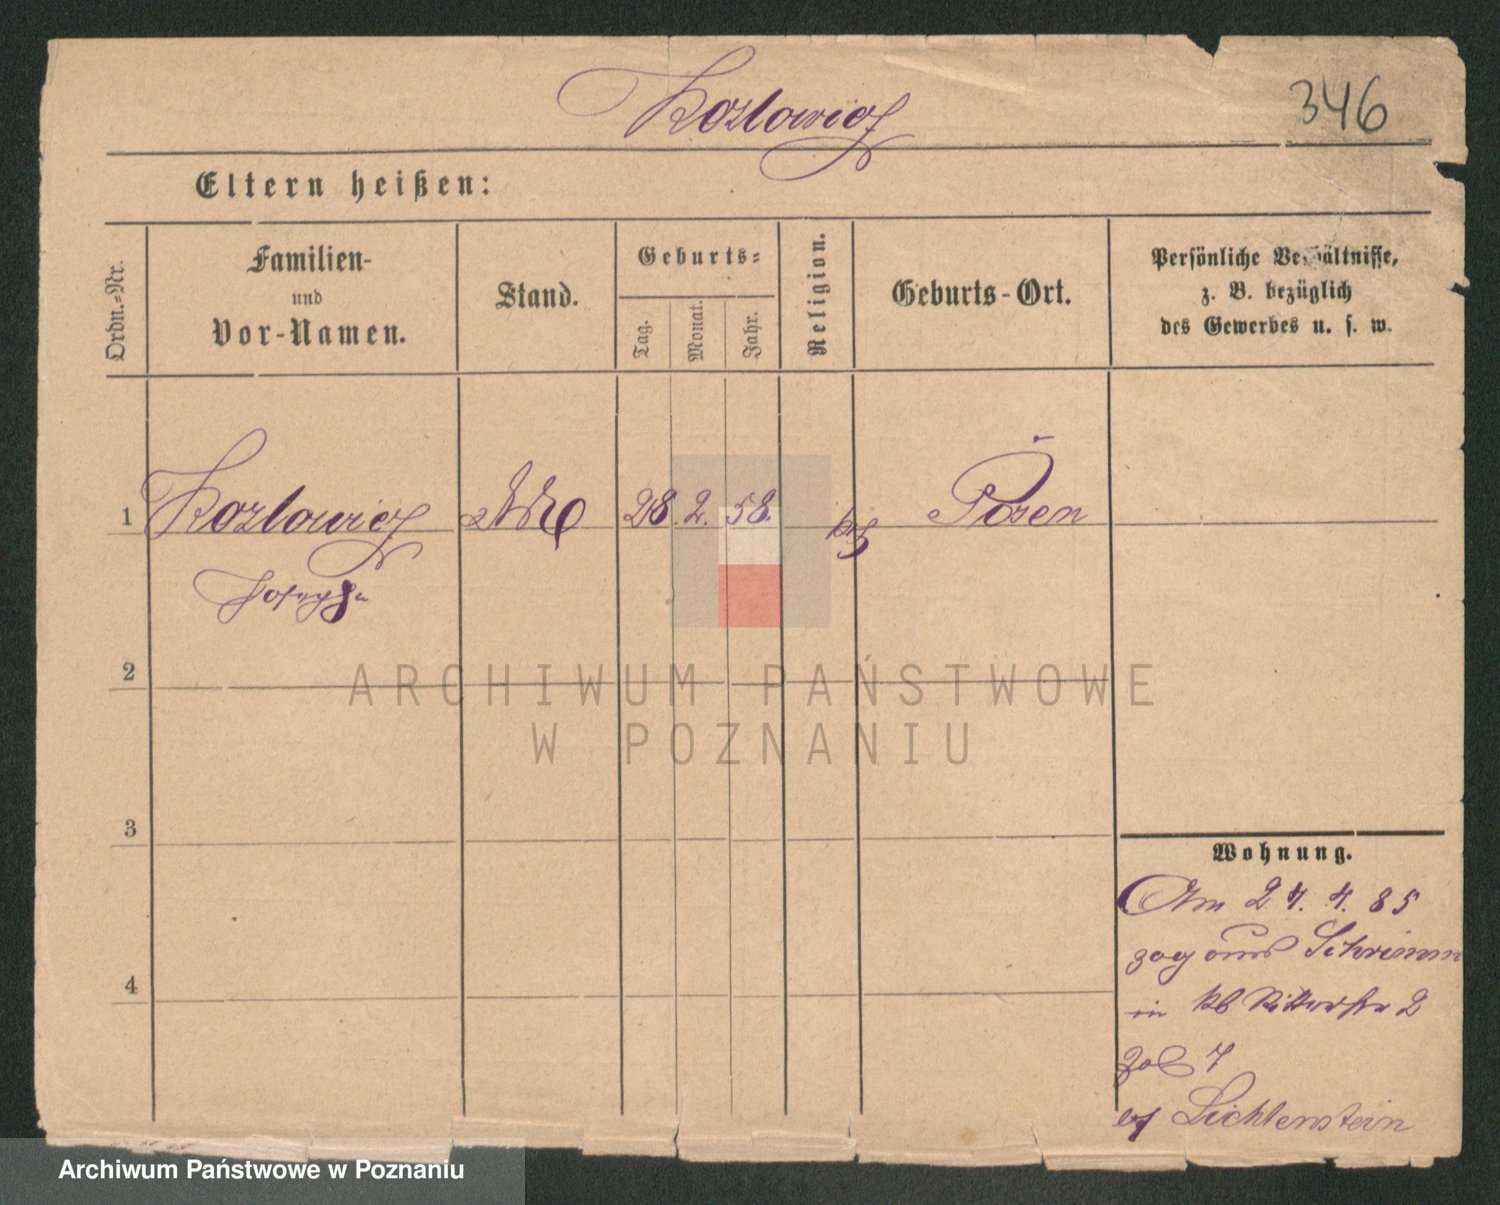 Kozlowicz
346
Eltern heißen:
Ordn.-Nr.
Familien-
und
Vor-Namen.
Stand.
Geburts-
Tag.
Monat.
Jahr.
Religion.
Geburts-Ort.
Persönliche Verhältnisse,
z. B. bezüglich
des Gewerbes u. s. w.
1 Kozlowicz 28 2. 58. Posen
Josepha
2
3
4
Wohnung.
Am 27. 4. 85
zog aus Schrimm
in Ritterstr 2
7
Lichtenstein
ARCHIWUM PAŃSTWOWE
W POZNANIU
Archiwum Państwowe w Poznaniu